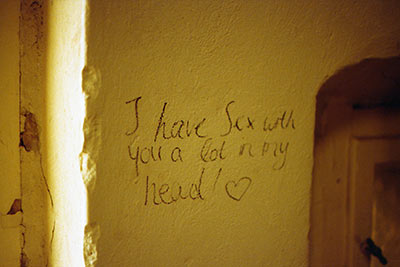 I have Sex with
you a lot in my
head! ♡